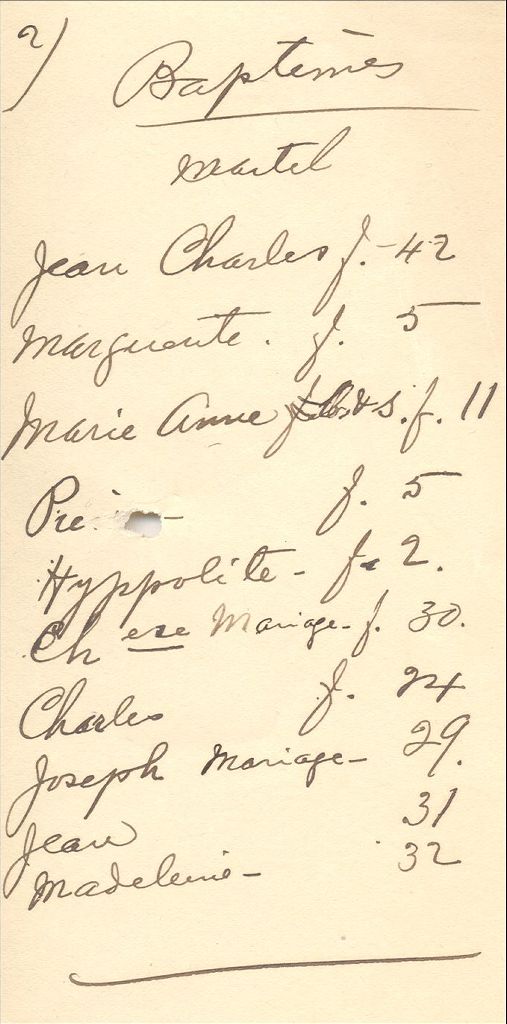 2)
Baptêmes
Martel
Jean Charles f. - 42
Marguerite. f. 5
Marie Anne f. 11
f. 5
Hyppolite - f. 2.
Ch ese Mariage - f. 30.
Charles f. 24
Joseph Mariage - 29.
Jean 31
Madeleine - 32